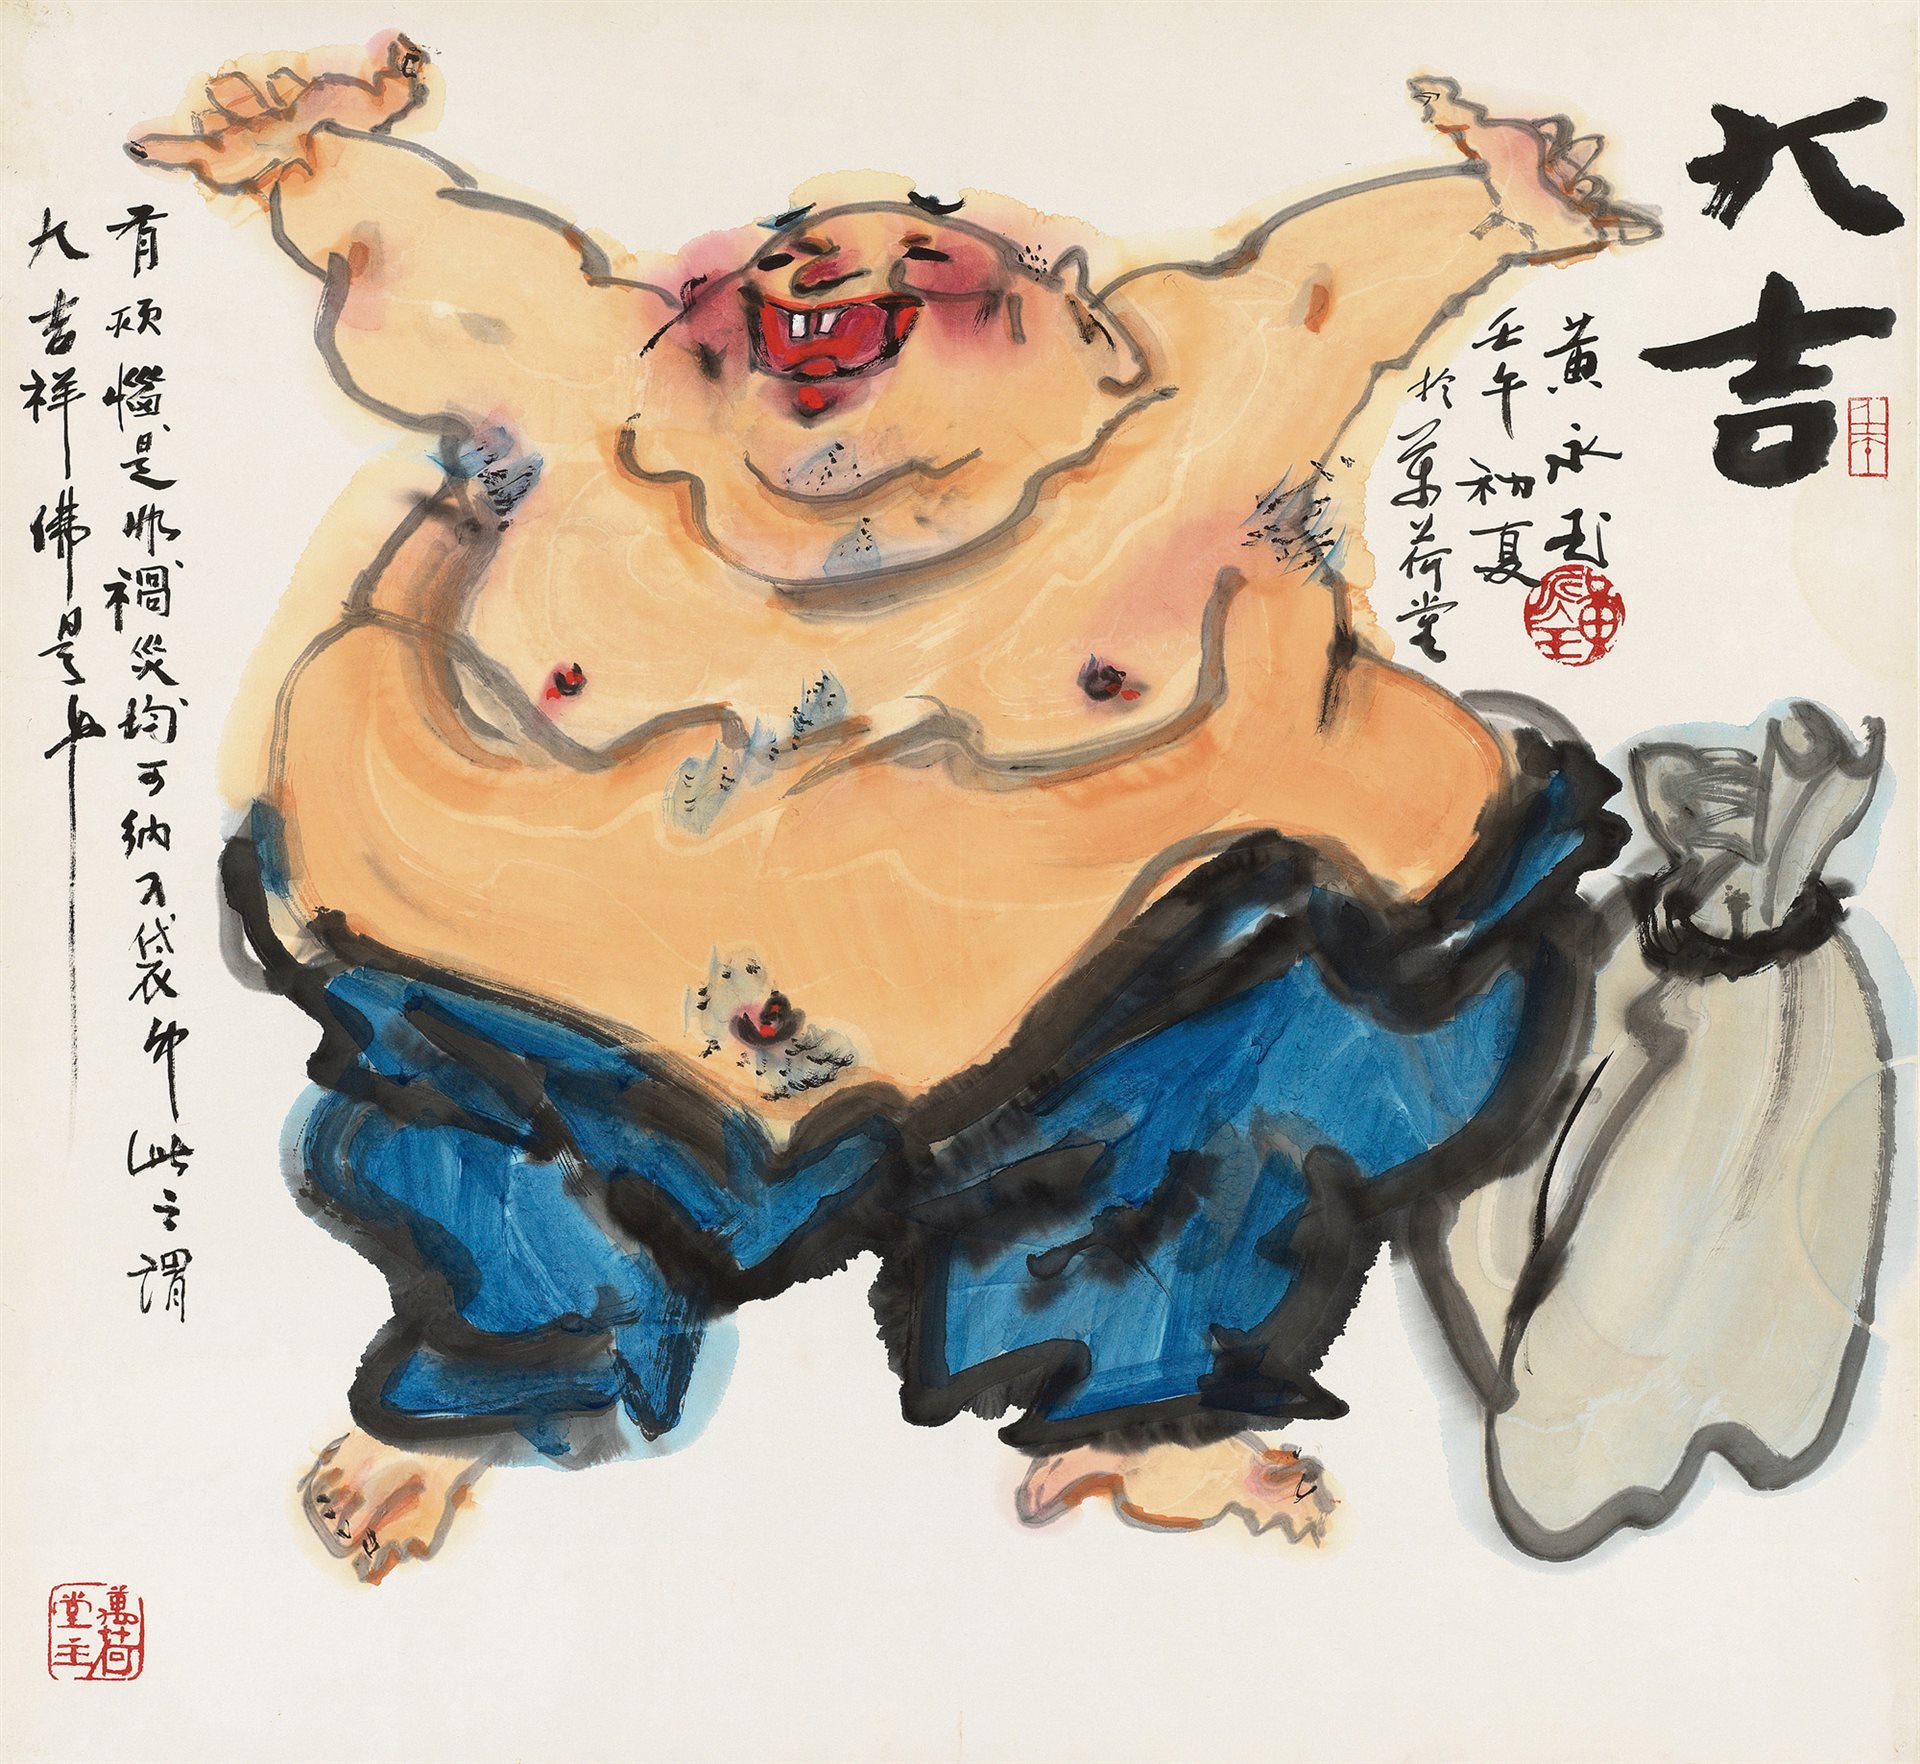 大吉
黃永玉
壬午初夏
於萬荷堂
黃永玉
有煩惱是非禍災均可納入袋中此之謂
大吉祥佛是也
萬荷堂主